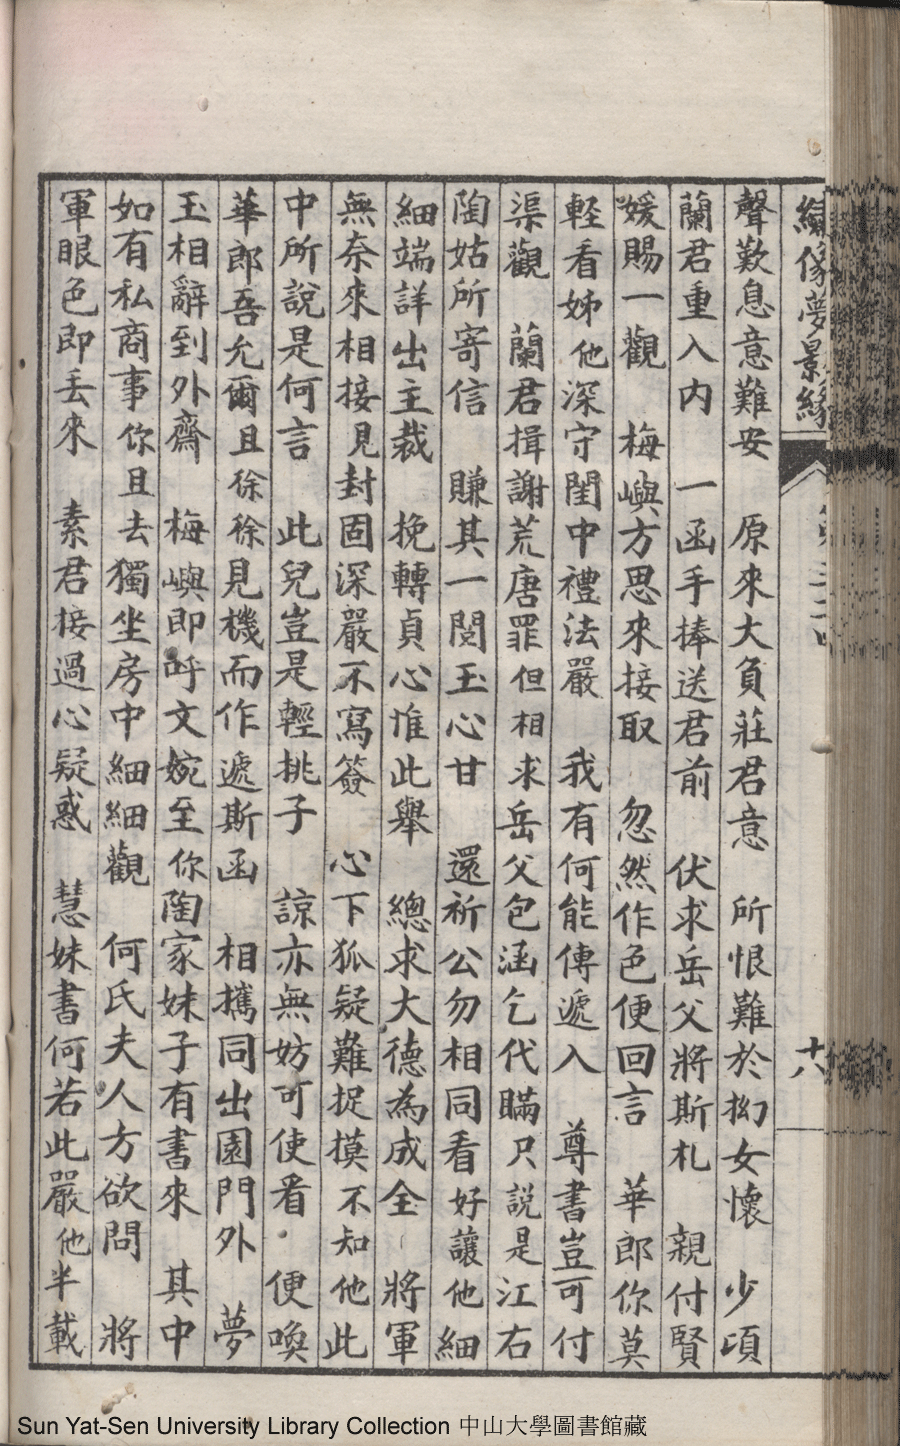 繡像夢景緣
十八
聲歎息意難安 原來大負莊君意 所恨難於拗女懷 少頃
蘭君重入內 一函手捧送君前 伏求岳父將斯札 親付賢
媛賜一觀 梅嶼方思來接取 忽然作色便回言 華郎你莫
輕看姊他深守閨中禮法嚴 我有何能傳遞入 尊書豈可付
渠觀 蘭君揖謝荒唐罪但相求岳父包涵乞代瞞只說是江右
陶姑所寄信 賺其一閱玉心甘 還祈公勿相同看好讓他細
細端詳出主裁 挽轉貞心惟此舉 總求大德為成全 將軍
無奈來相接見封固深嚴不寫簽 心下狐疑難捉摸不知他此
中所說是何言 此兒豈是輕挑子 諒亦無妨可使看 便喚
華郎吾允爾且徐徐見機而作遞斯函 相攜同出園門外 夢
玉相辭到外齋 梅嶼即呼文婉至你陶家妹子有書來 其中
如有私商事你且去獨坐房中細細觀 何氏夫人方欲問 將
軍眼色即丟來 素君接過心疑惑 慧妹書何若此嚴他半載
Sun Yat-Sen University Library Collection 中山大學圖書館藏